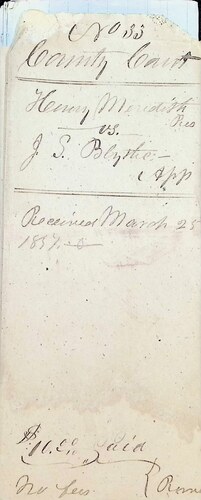 No 33
County Court
Henry Meredith
Res
vs.
J. S. Blythe
App
Received March 25
1857
Paid
No fees